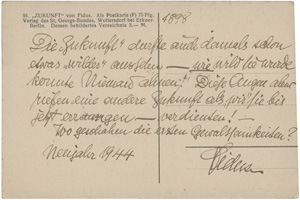 91. „ZUKUNFT" von Fidus. Als Postkarte (F) 75 Pfg.
Verlag des St. Georgs-Bundes, Woltersdorf bei Erkner-
Berlin. Dessen bebildertes Verzeichnis 3.— M.
1898
„Die Zukunft" durfte auch damals schon
etwas „wilder" ausſehen — wie wild sie wurde
konnte Niemand ahnen! Diese Augen aber
riefen eine andere Zukunft als wir sie bis
jetzt errangen — verdienten! —
Wo geschahen die ersten Gewaltsamkeiten?
Neujahr 1944
Fidus